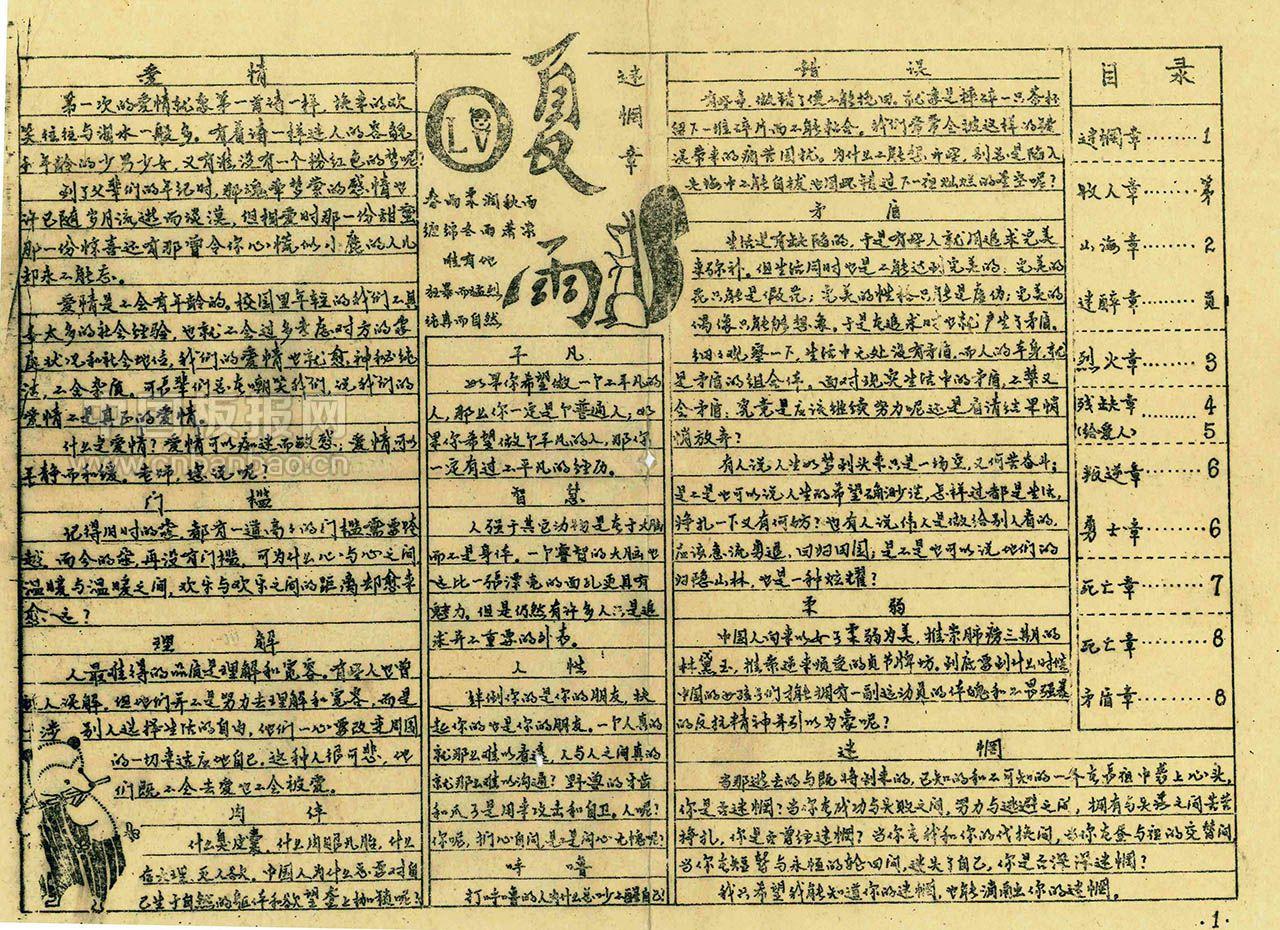 爱 情
第一次的爱情就像第一首诗一样，换来的欢
笑往往与泪水一般多。有着诗一样迷人的容貌
和年龄的少男少女，又有谁没有一个粉红色的梦呢？
到了父辈们的年纪时，那魂牵梦萦的感情也
许已随岁月流逝而淡漠，但相爱时那一份甜蜜
那一份惊喜还有那曾令你心慌似小鹿的人儿
却永不能忘。
爱情是不会有年龄的。校园里年轻的我们不具
有太多的社会经验，也就不会过多考虑对方的家
庭状况和社会地位，我们的爱情也就愈神秘纯
洁，不会杂质。可长辈们总在嘲笑我们，说我们的
爱情不是真正的爱情。
什么是爱情？爱情可以痴迷而敏感；爱情可以
平静而和缓。老师，您说呢？
门 槛
记得旧时的家，都有一道高高的门槛需要跨
越，而今的家，再没有门槛，可为什么心与心之间
温暖与温暖之间，欢乐与欢乐之间的距离却愈来
愈远？
理 解
人最难得的品质是理解和宽容。有些人也曾
被人误解，但他们并不是努力去理解和宽容，而是
干涉别人选择生活的自由，他们一心要改变周围
的一切来适应他自己。这种人很可悲，他
们既不会去爱也不会被爱。
肉 体
什么臭皮囊，什么肉眼凡胎，什么
存天理，灭人欲，中国人为什么总要对自
己生于自然的躯体和欲望套上枷锁呢？
LV
夏
雨
迷惘章
春雨柔润秋雨
缠绵冬雨萧索
唯有他
狂暴而猛烈
纯真而自然
平 凡
如果你希望做一个不平凡的
人，那么你一定是个普通人；如
果你希望做个平凡的人，那你
一定有过不平凡的经历。
智 慧
人强于其它动物是在于大脑
而不是身体。一个睿智的大脑也
远比一张漂亮的面孔更具有
魅力。但是仍然有许多人只是追
求并不重要的外表。
人 性
绊倒你的是你的朋友，扶
起你的也是你的朋友。一个人真的
就那么难以看透，人与人之间真的
就那么难以沟通？野兽的牙齿
和爪子是用来攻击和自卫。人呢？
你呢，扪心自问，是不是问心无愧呢？
呼 噜
打呼噜的人为什么总吵不醒自己？
错 误
有些事，做错了便不能挽回。就像是摔碎一只茶杯
留下一堆碎片而不能粘合。我们常常会被这样的错
误带来的痛苦困扰。为什么不能想开些，别总是陷入
苦海中不能自拔也因此错过下一祖灿烂的星空呢？
矛 盾
生活是有缺陷的，于是有些人就用追求完美
来弥补。但生活同时也是不能达到完美的：完美的
花只能是假花；完美的性格只能是虚伪；完美的
偶像只能够想象。于是在追求时也就产生了矛盾。
细细观察一下，生活中无处没有矛盾，而人的本身就
是矛盾的组合体。面对现实生活中的矛盾，不禁又
会矛盾：究竟是应该继续努力呢还是看清结果悄
悄放弃？
有人说人生如梦到头来只是一场空，又何苦奋斗；
是不是也可以说人生的希望正确渺茫，怎样过都是生活，
挣扎一下又有何妨？也有人说伟人是做给别人看的，
应该急流勇退，回归田园；是不是也可以说他们的
归隐山林，也是一种炫耀？
柔 弱
中国人向来以女子柔弱为美，推崇肺痨三期的
林黛玉，推崇逆来顺受的贞节牌坊。到底要到什么时候
中国的女孩子们才能拥有一副运动员的体魄和不畏强暴
的反抗精神并引以为豪呢？
迷 惘
当那逝去的与既将到来的，已知的和不可知的一齐在黑夜中袭上心头，
你是否迷惘？当你在成功与失败之间，努力与逃避之间，拥有与失落之间苦苦
挣扎，你是否曾经迷惘？当你在我和你的代换间，当你在昼与夜的交替间
当你在短暂与永恒的轮回间，迷失了自己，你是否深深迷惘？
我只希望我能知道你的迷惘，也能读出你的迷惘。
目 录
迷惘章……1
牧人章……第
山海章……2
迷醉章……页
烈火章……3
残缺章……4
(给爱人)……5
叛逆章……6
勇士章……6
死亡章……7
死亡章……8
矛盾章……8
·1·
www.cnbanbao.cn